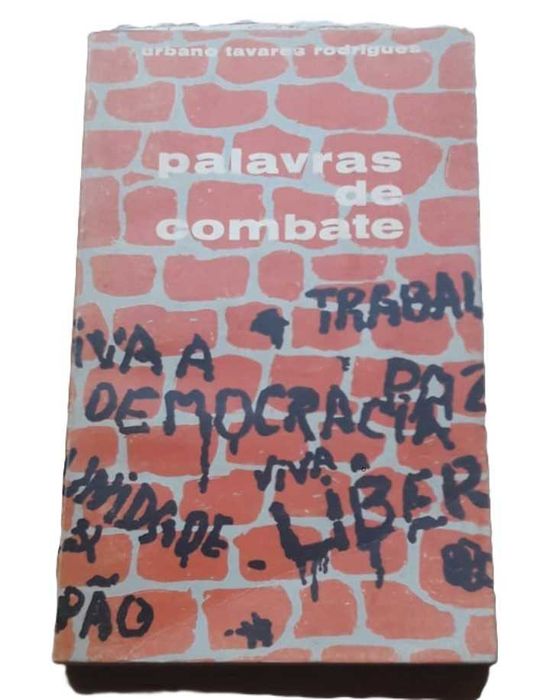 urbano tavares rodrigues
palavras
de
combate
TRABAL
IVA A
PAZ
DEMOCRACIA
VIVA
LIBER
UNIDADE
PÃO